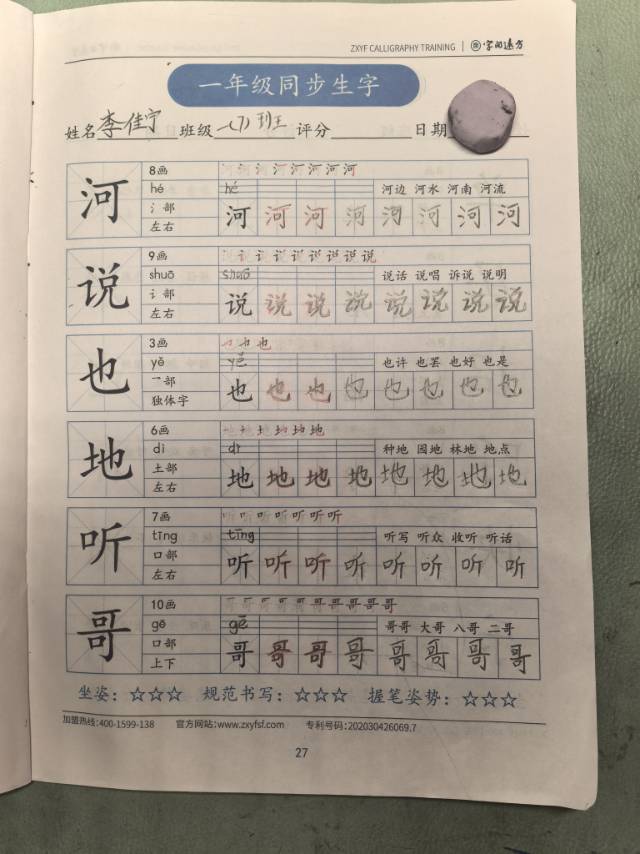 ZXYF CALLIGRAPHY TRAINING | 字的远方
一年级同步生字
姓名 李佳宁 班级 一(7)班 评分 日期
河 8画
hé hé 河边 河水 河南 河流
氵部 河 河 河 河 河 河 河 河
左右
说 9画
shuō shuō 说话 说唱 诉说 说明
讠部 说 说 说 说 说 说 说 说
左右
也 3画 也
yě yě 也许 也罢 也好 也是
乛部 也 也 也 也 也 也 也 也
独体字
地 6画 地
dì dì 种地 园地 林地 地点
土部 地 地 地 地 地 地 地 地
左右
听 7画 听
tīng tīng 听写 听众 收听 听话
口部 听 听 听 听 听 听 听 听
左右
哥 10画 哥
gē gē 哥哥 大哥 八哥 二哥
口部 哥 哥 哥 哥 哥 哥 哥 哥
上下
坐姿：☆☆☆ 规范书写：☆☆☆ 握笔姿势：☆☆☆
加盟热线:400-1599-138 官方网站:www.zxyfsf.com 专利号码:202030426069.7
27